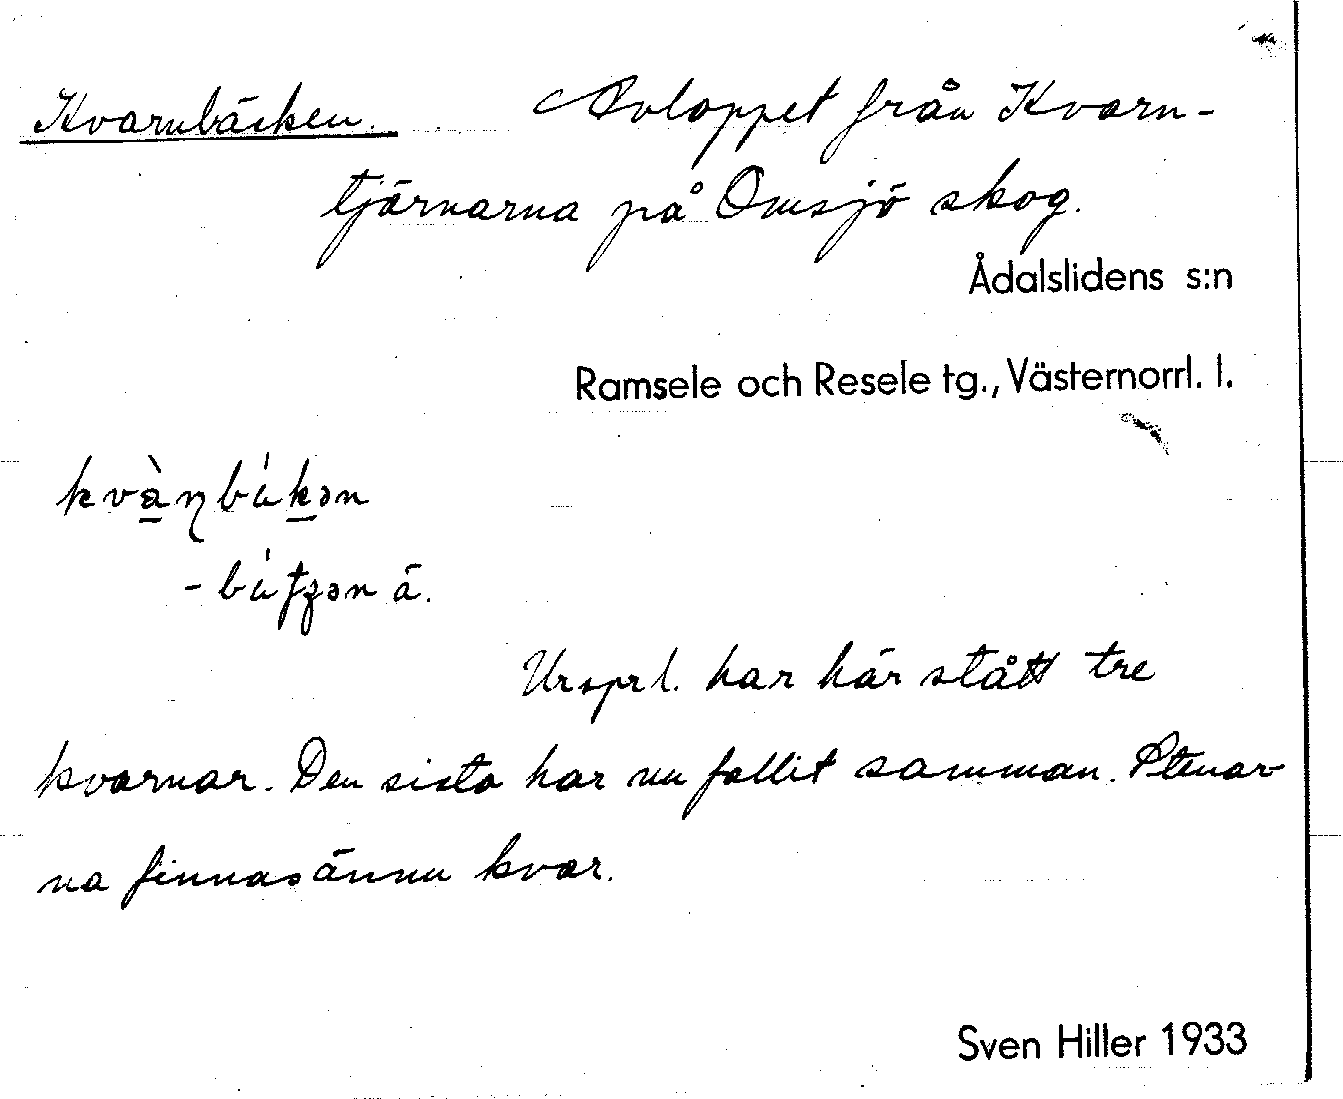 Kvarnbäcken. Avloppet från Kvarn-
tjärnarna på Omsjö skog.
Ådalslidens s:n
Ramsele och Resele tg., Västernorrl. l.
Ursprl. har här stått tre
kvarnar. Den sista har nu fallit samman. Stenar
na finnas ännu kvar.
Sven Hiller 1933